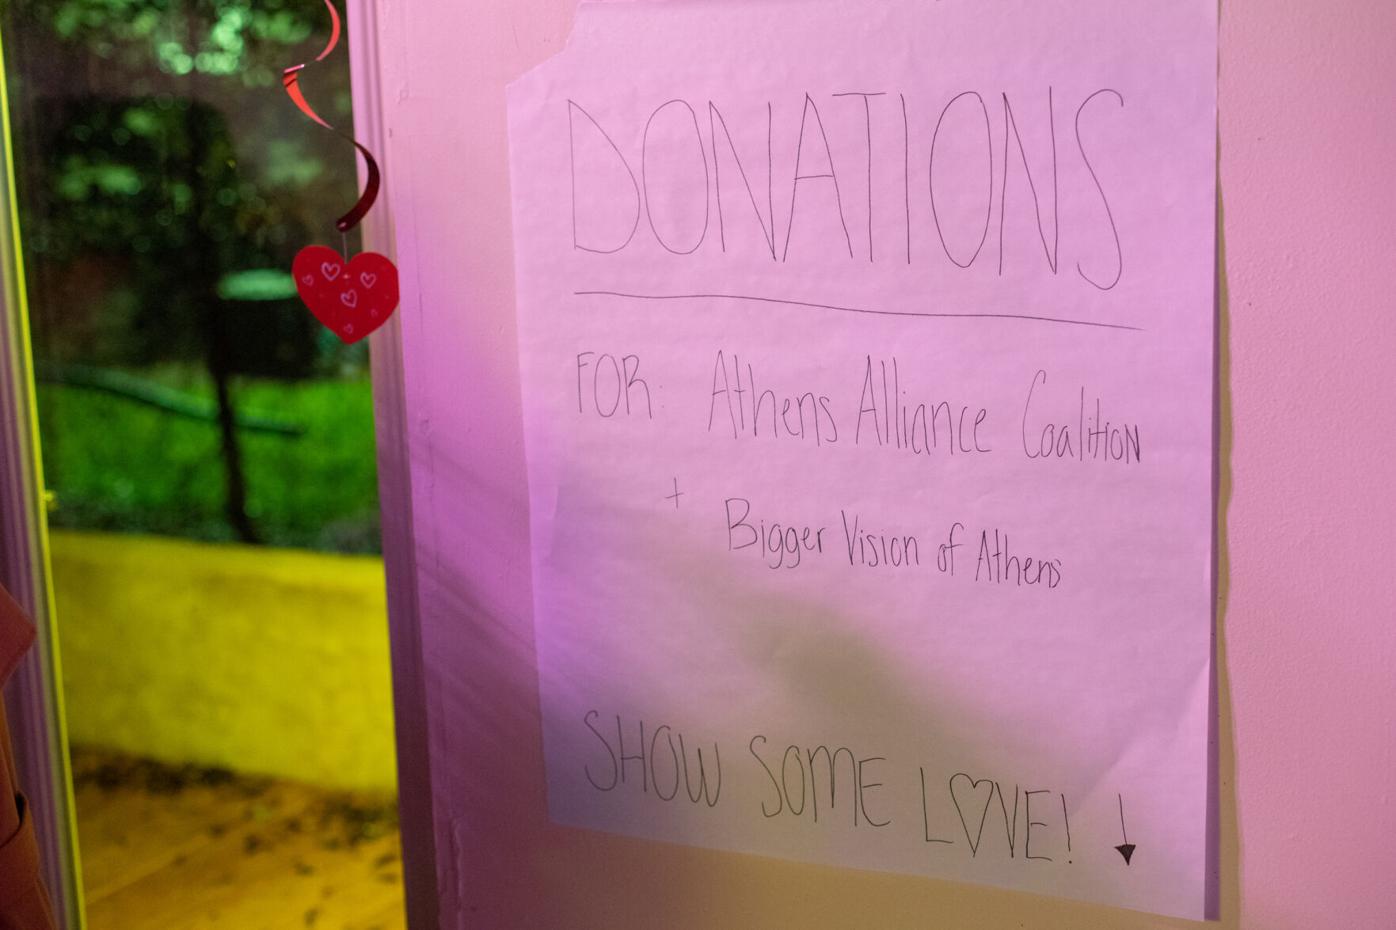 DONATIONS
FOR: Athens Alliance Coalition
+ Bigger Vision of Athens
SHOW SOME L♡VE! ↓